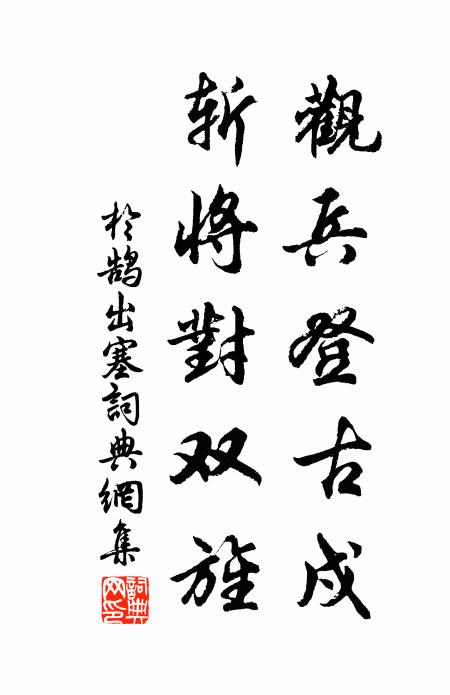 觀兵登古戍
斬將對双旌
於鵠出塞詞典網集
詞典网印